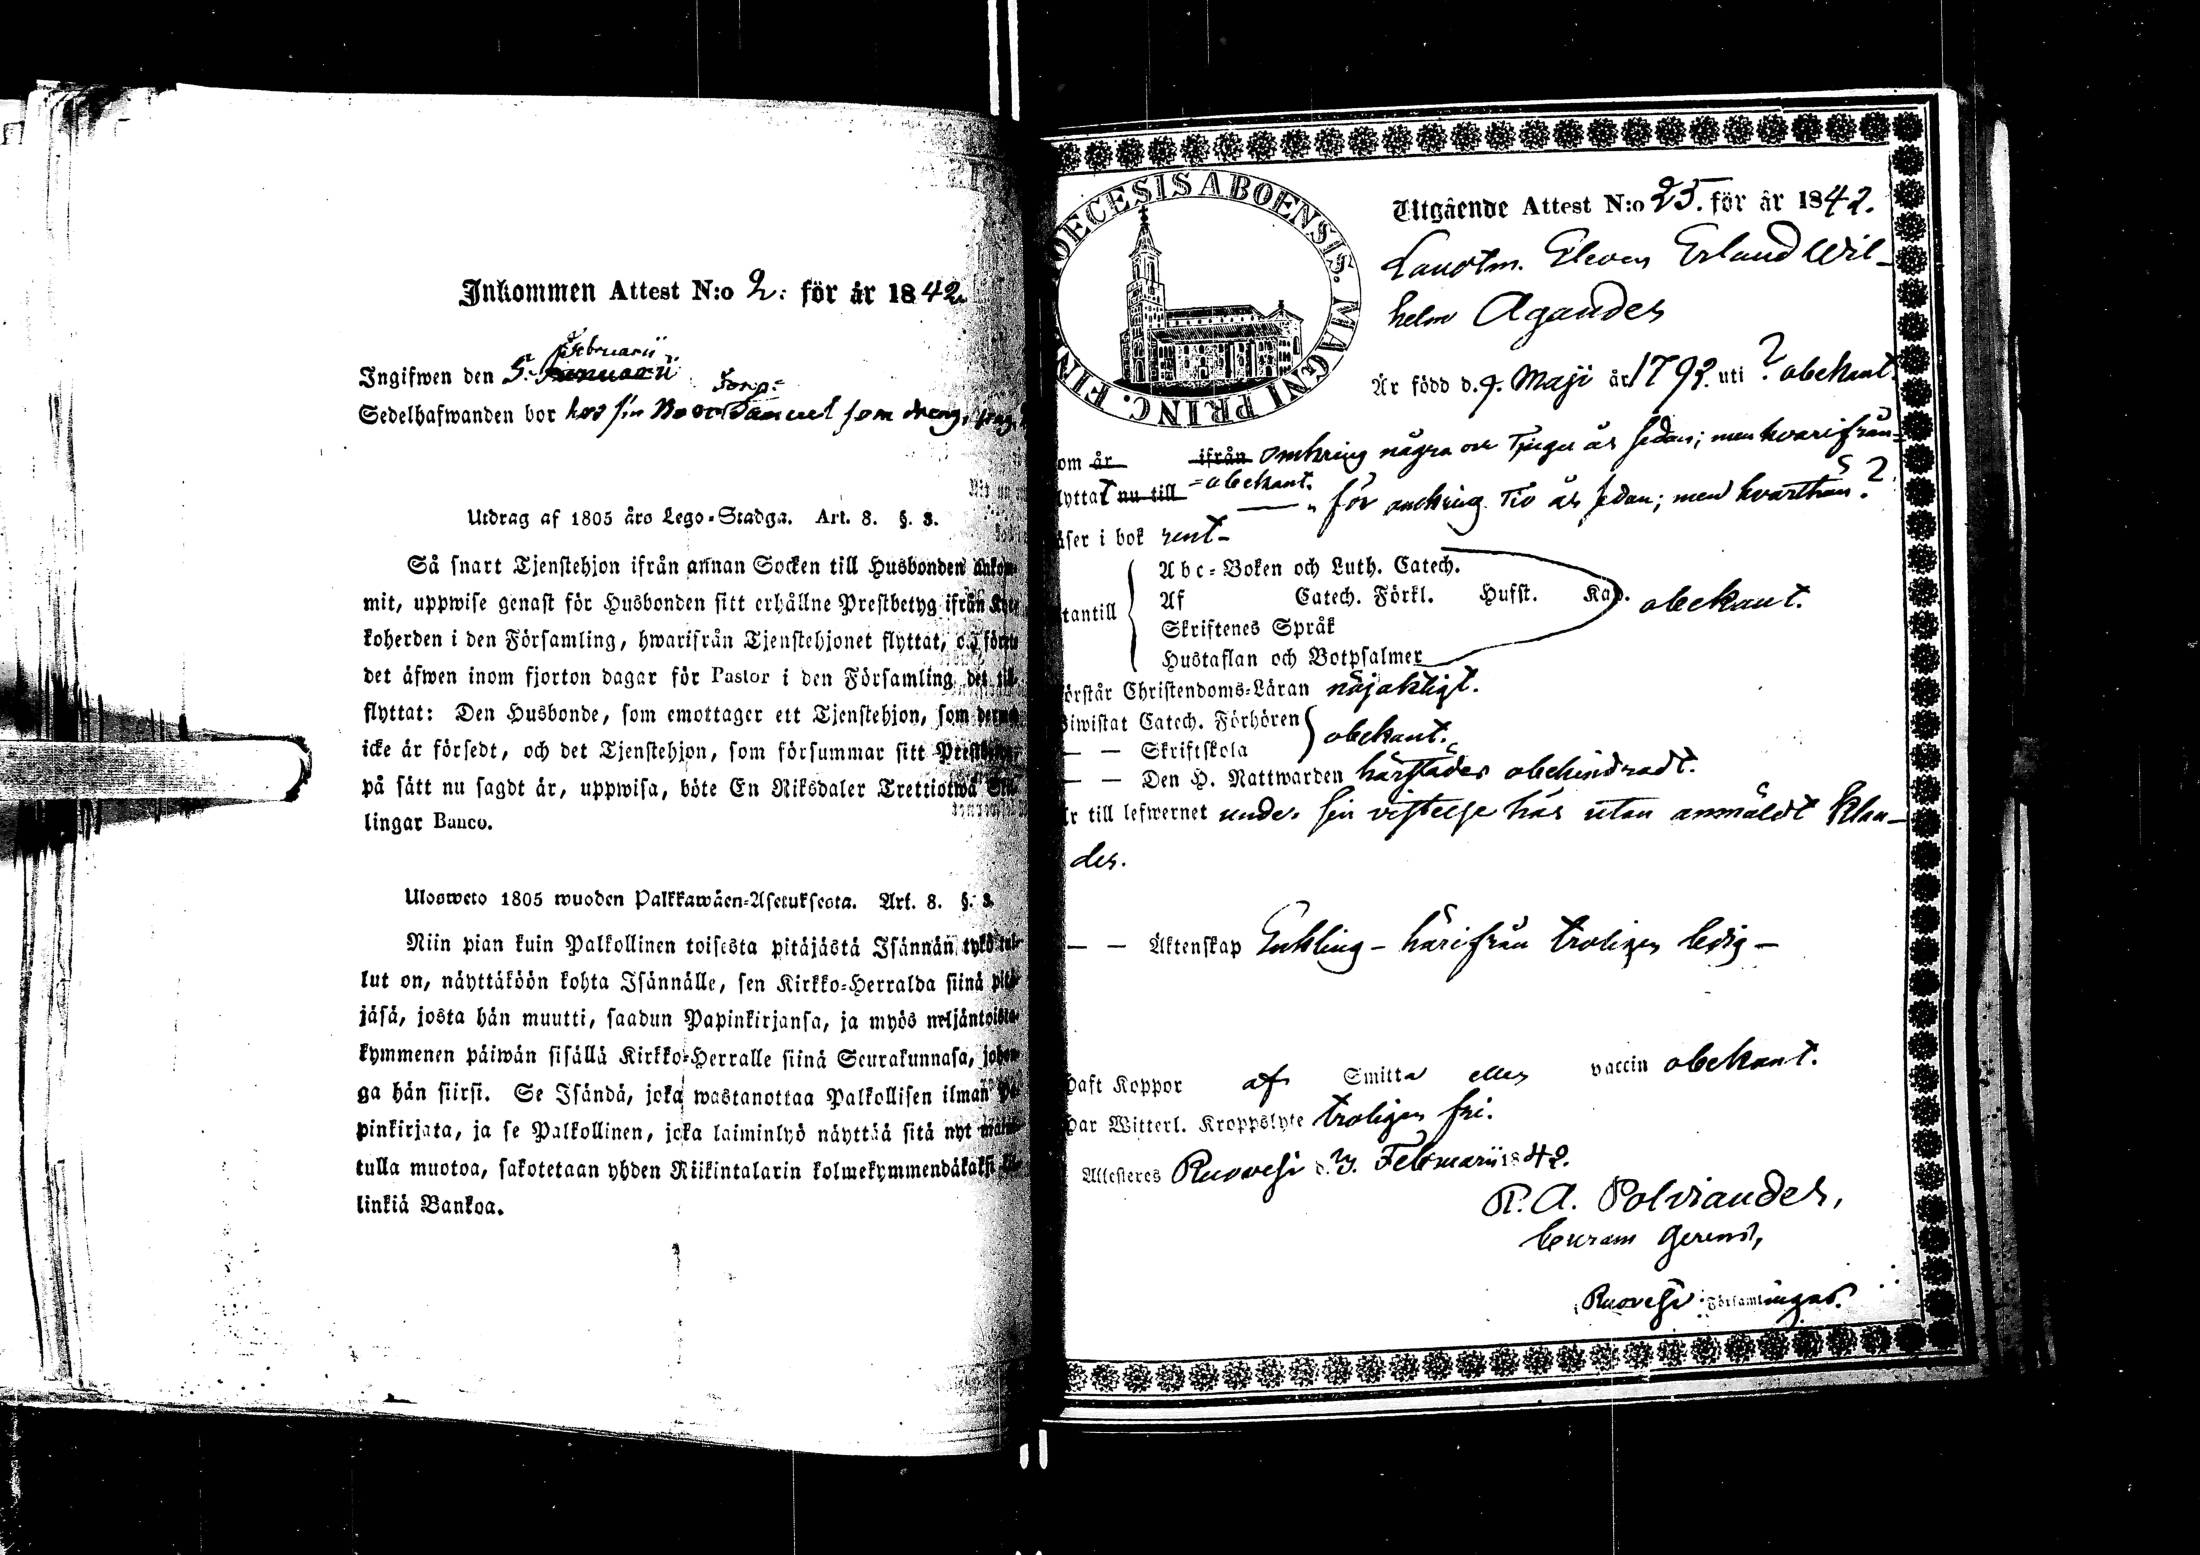 Inkommen Attest N:o 2: för år 1842.
Februarii
Ingifwen den 5. Januarii
Sedelhafwanden bor hos sin Bror Samuel som dreng,
Utdrag af 1805 års Lego-Stadga. Art. 8. §. 8.
Så snart Tjenstehjon ifrån annan Socken till Husbonden ankom-
mit, uppwise genast för Husbonden sitt erhållne Prestbetyg ifrån Kyr-
koherden i den Församling, hwarifrån Tjenstehjonet flyttat, och förete
det äfwen inom fjorton dagar för Pastor i den Församling, det till-
flyttat: Den Husbonde, som emottager ett Tjenstehjon, som dermed
icke är försedt, och det Tjenstehjon, som försummar sitt Prestbetyg,
på sätt nu sagdt är, uppwisa, böte En Riksdaler Trettiotwå Skil-
lingar Banco.
Ulosweto 1805 wuoden Palkkawäen-Asetuksesta. Art. 8. §. 8.
Niin pian kuin Palkollinen toisesta pitäjästä Isännän tykö tul-
lut on, näyttäköön kohta Isännälle, sen Kirkko-Herralda siinä pitä-
jäsä, josta hän muutti, saadun Papinkirjansa, ja myös neljäntoista-
kymmenen päiwän sisällä Kirkko-Herralle siinä Seurakunnasa, johon-
ga hän siirsi. Se Isändä, joka wastanottaa Palkollisen ilman Pa-
pinkirjata, ja se Palkollinen, joka laiminlyö näyttää sitä nyt mainit-
tulla muotoa, sakotetaan yhden Riikintalarin kolmekymmendäkaksi kil-
linkiä Bankoa.
DIOECESIS ABOENSIS. MAGNI PRINC. FIN
Utgående Attest N:o 25. för år 1842.
Landtm. Eleven Erland Wil-
helm Agander
Är född d. 9. Maji år 1792. uti ? obekant.
om år ifrån omkring några och Tjugu år sedan; men hvarifrån
= obekant.
lyttat nu till — " för omkring Tio år sedan; men hvarthän?
äser i bok rent -
Abc-Boken och Luth. Catech.
Af Catech. Förkl. Hufst. Kap. obekant.
tantill
Skriftenes Språk
Hustaflan och Botpsalmer
örstår Christendoms-Läran nöjaktigt.
iwistat Catech. Förhören
obekant.
— — Skriftskola
— — Den H. Nattwarden härstädes obehindradt.
r till lefwernet under sin vistelse här utan anmäldt klan-
der.
— — Äktenskap Enkling - härifrån troligen ledig -
haft Koppor af Smitta eller vaccin obekant.
har Witterl. Kroppslyte troligen fri.
Attesteras Ruovesi d. 3. Februarii 1842.
P. A. Polviander,
Curam gerens,
Ruovesi Församlingar.